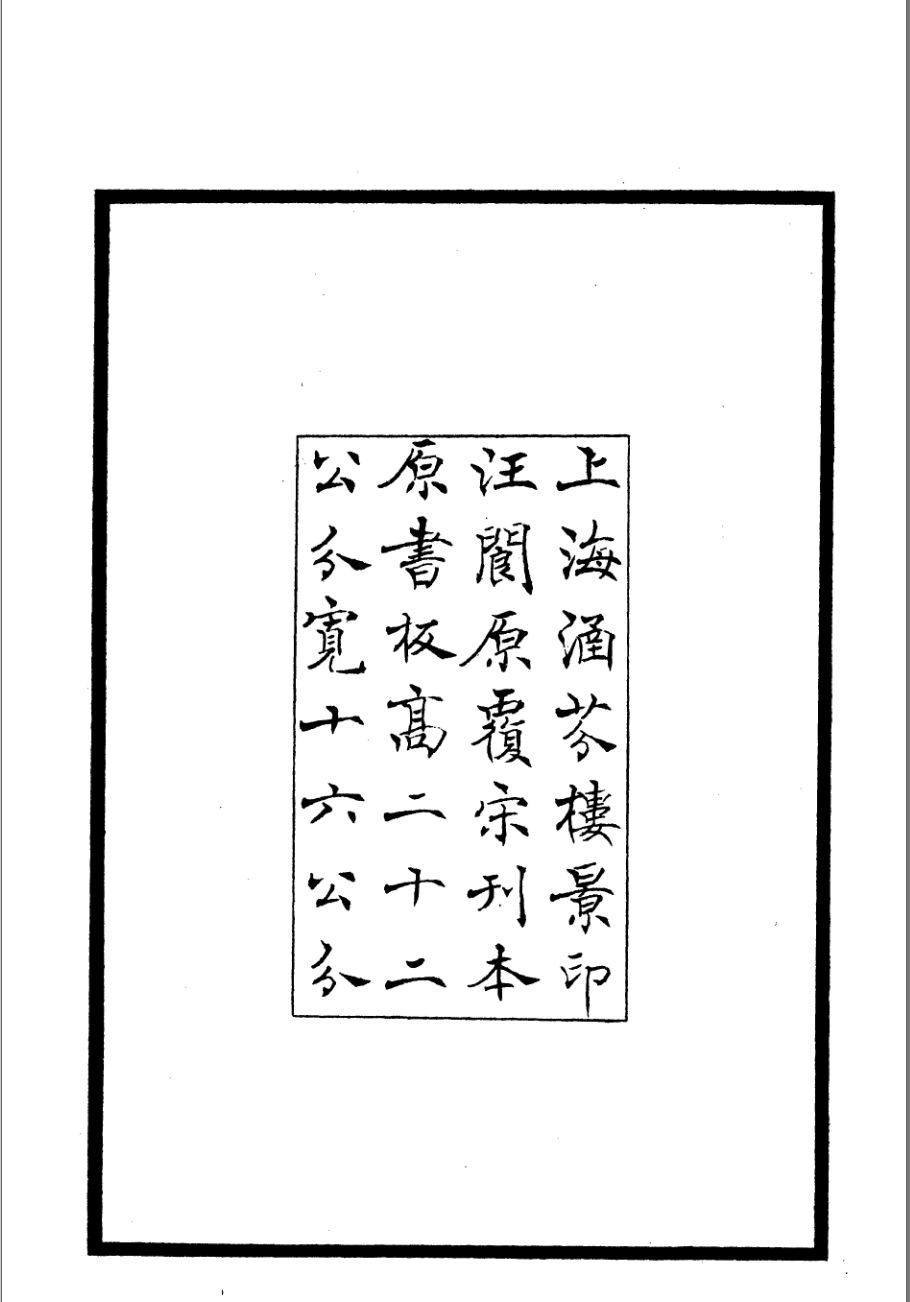 上海涵芬樓景印
汪閬原覆宋刊本
原書板高二十二
公分寬十六公分